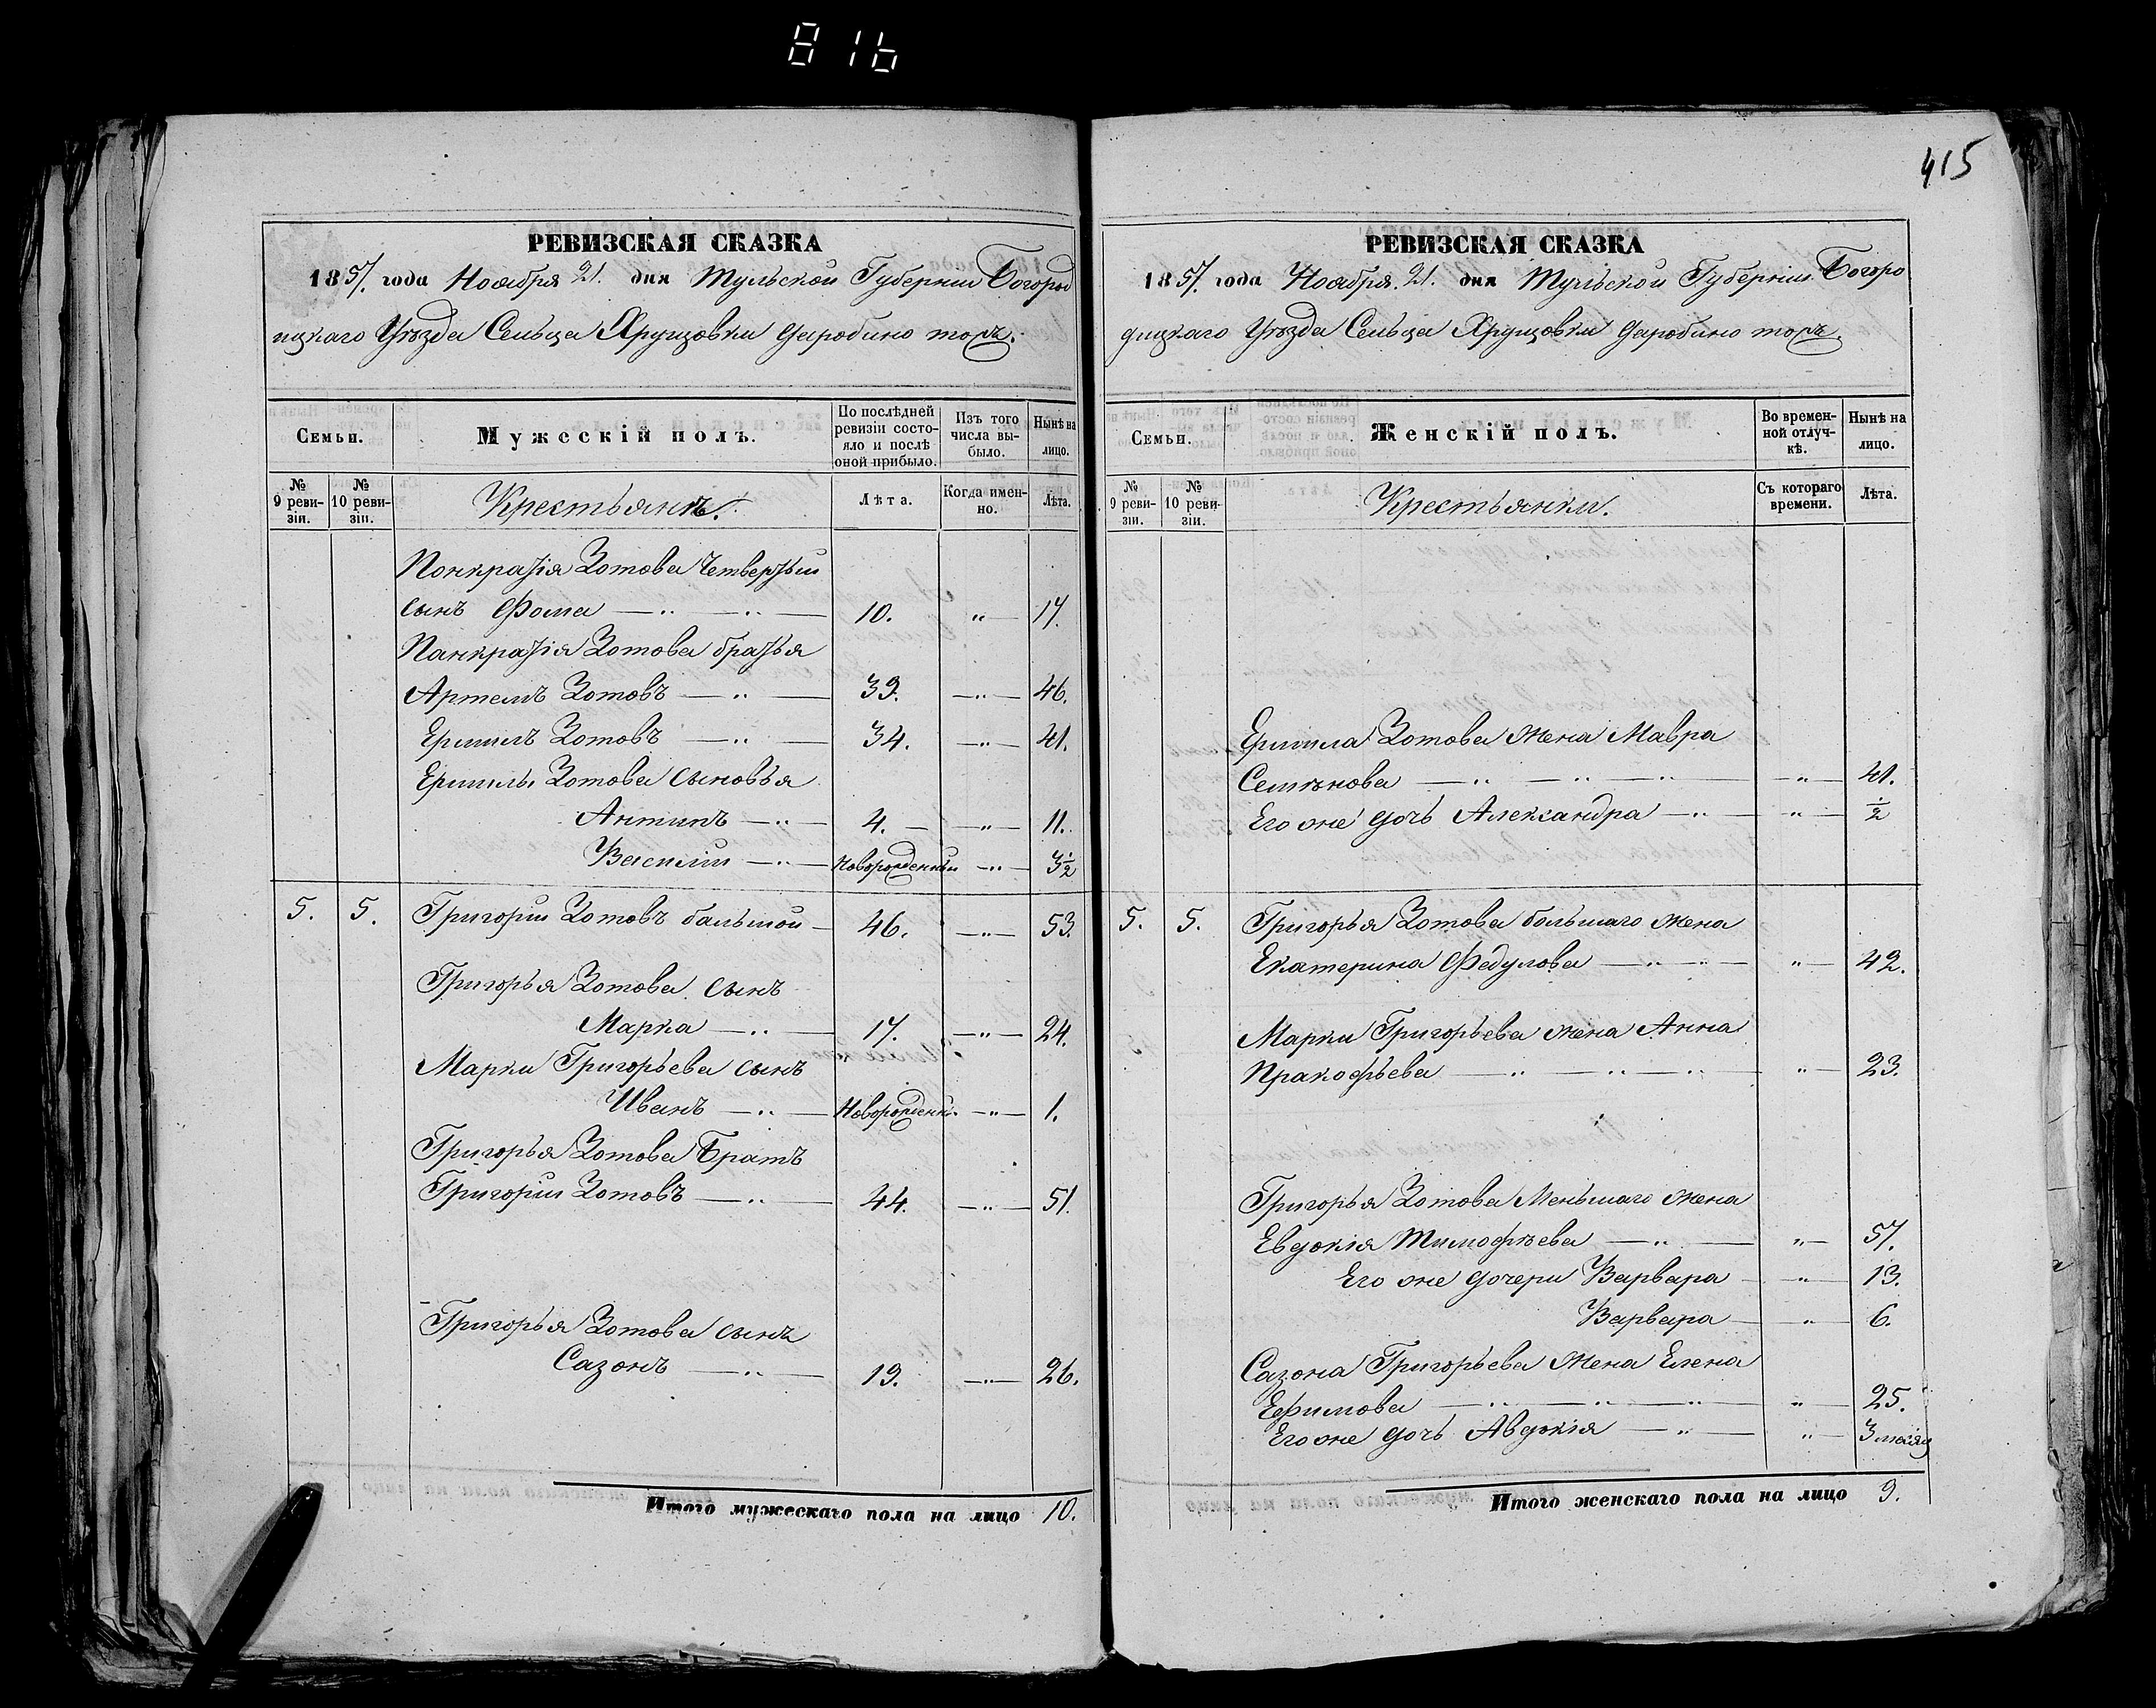 816
415
РЕВИЗСКАЯ СКАЗКА
1857. года Ноября 21. дня Тульской Губернии Богород
ицкаго Уѣзда Сельца Хрущовки Дарюбино тожъ.
Семьи.
Мужескій полъ.
По послѣдней ревизіи состояло и послѣ оной прибыло.
Изъ того числа выбыло.
Нынѣ на лицо.
№ 9 ревизіи.
№ 10 ревизіи.
Крестьянъ.
Лѣта.
Когда именно.
Лѣта.
Понкратія Зотова Четвертый
сынъ Фома — „ — „ — 10. „ — 17.
Панкратія Зотова братья
Артемъ Зотовъ — „ — 39. — „ — 46.
Ермилъ Зотовъ — „ — 34. — „ — 41.
Ермилы Зотова сыновья
Антипъ — „ — 4. — — „ — 11.
Василій — „ — Новорожденный — „ — 3 1/2
5. 5. Григорій Зотовъ бальшой — 46. — „ — 53.
Григорья Зотова сынъ
Марка — „ — 17. — „ — 24.
Марки Григорьева сынъ
Иванъ — „ — Новорожденн. — „ — 1.
Григорья Зотова Братъ
Григорій Зотовъ — „ — 44. — „ — 51.
Григорья Зотова сынъ
Сазонъ — „ — 19. — „ — 26.
Итого мужескаго пола на лицо 10.
РЕВИЗСКАЯ СКАЗКА
1857. года Ноября. 21. дня Тульской Губерніи Богоро
дицкаго Уѣзда Сельца Хрущовки Дарюбино тожъ.
Семьи.
Женскій полъ.
Во временной отлучкѣ.
Нынѣ на лицо.
№ 9 ревизіи.
№ 10 ревизіи.
Крестьянки.
Съ котораго времени.
Лѣта.
Ермила Зотова жена Мавра
Семѣнова — „ — „ — „ — — „ — 41.
Его же дочь Александра — „ — „ — 1/2
5. 5. Григорья Зотова большаго жена
Екатерина Федулова — „ — „ — „ — 42.
Марки Григорьева жена Анна
Пракофьева — „ — „ — „ — „ — 23.
Григорья Зотова Меньшаго жена
Евдокія Тимофѣева — „ — „ — 57.
Его же дочери Варвара — „ — 13.
Варвара — — „ — 6.
Сазона Григорьева жена Елена
Ефимова — „ — „ — „ — „ — 25.
Его же дочь Авдокія — „ — „ — 3 месяц
Итого женскаго пола на лицо 9.